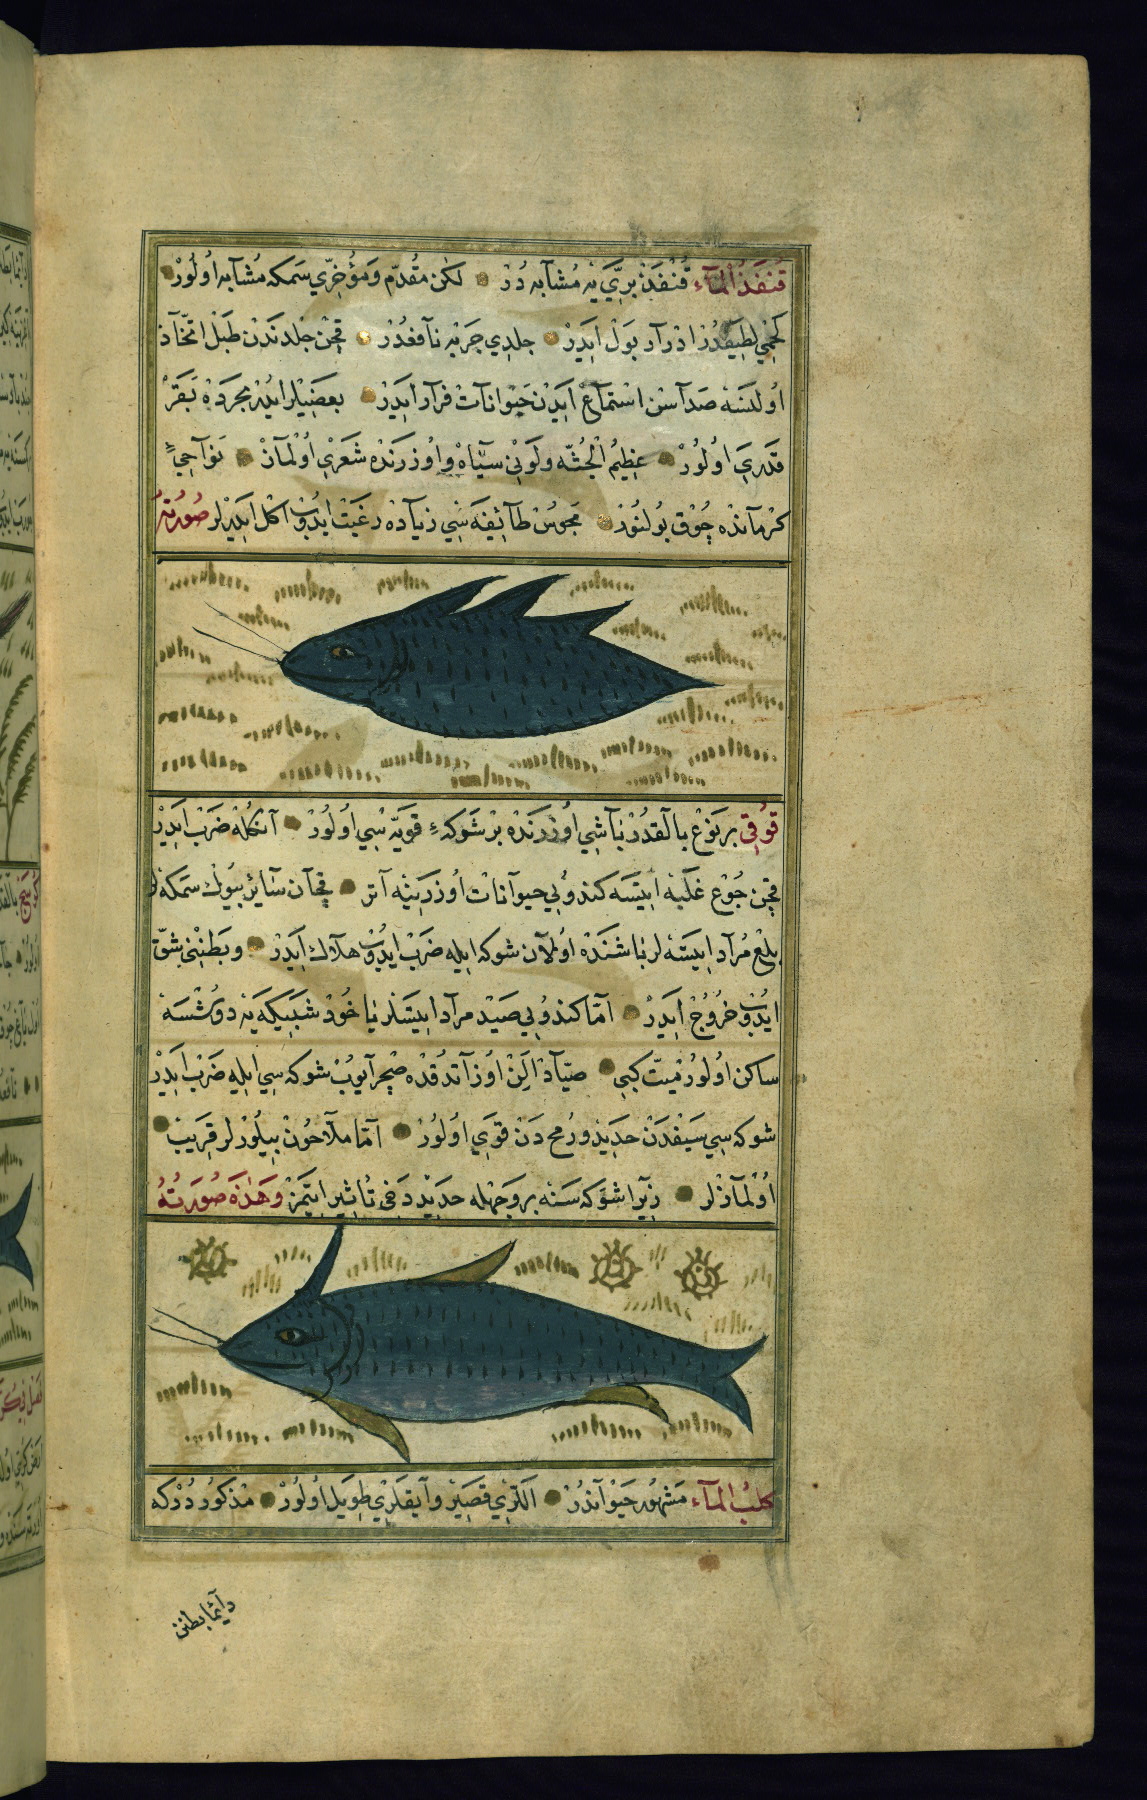 قُنفَذُ الْمَآء قُنْفَذْ بَرِّي يَه مُشَابه دُرْ لكن مُقَدَّم وَمُؤَخَّرِي سَمكه مُشَابه اُولُورْ
لَحْمِي لَطِيفْدُرْ ادْرَار بَوْل ايَدَرْ جلدِي جَرَبه نَافِعْدُرْ قچن جلدندن طَبْل اتّخَاذ
اُولنسَه صَدَاسن اسْتِمَاع ايدَن حَيوانَات فرَار ايدَرْ بعضيلر ايدر بحرده بقر
قدرى اولُورْ عظِيمُ الْجُثّه ولَوْنى سِيَاه واُوزرنده شَعرِي اُولمَازْ نوَاحِيءِ
كرمَانده چُوق بُولنُورْ مجوسْ طَائِفَه سِي زيَاده رغبَت ايدُوب اكل ايدرلر صُورتهُ
قُوقِى بر نَوع بالِقدُرْ بَاشِي اُوزرنده بر شَوكهءِ قويّه سِي اُولُورْ آنكله ضَرْب ايدَرْ
قچن جُوع غلبَه ايتسَه كندوُيي حيوانات اُوزرينه آتر قچان سَائر بيُوك سَمكه لر
بلغ مُرَاد ايتسَه لر بَاشنده اُولَان شوكه ايله ضَرب ايدُوب هلَاك ايدر وبطنِنى شقّ
ايدُوب خُروُج ايدَرْ امّا كندوُيي صَيْد مرَاد ايتسَلر يا خُود شَبيكه يَه دوُشسَه
ساكن اُولُورْ ميّت كبي صيّاد الِنْ اُوزاتدقده صِچرايُوب شوكه سِي ايله ضَرب ايدَرْ
شوكه سِي سَيْفدن حدِيد ورُمح دَن قوِي اُولُورْ امّا ملّاحُون بيلُورلر قريب
اُولمَازلر زيرا شوكه سَنه بر وجهله حدِيد دَخى تأثير ايتمز وَهٰذه صُورَتُهُ
كلبُ الْمَآء مشهُور حيوَاندُرْ اللّرِي قصِير وآيقلَرِي طويل اُولُورْ مذكُور دُرْكه
دائما بطنن